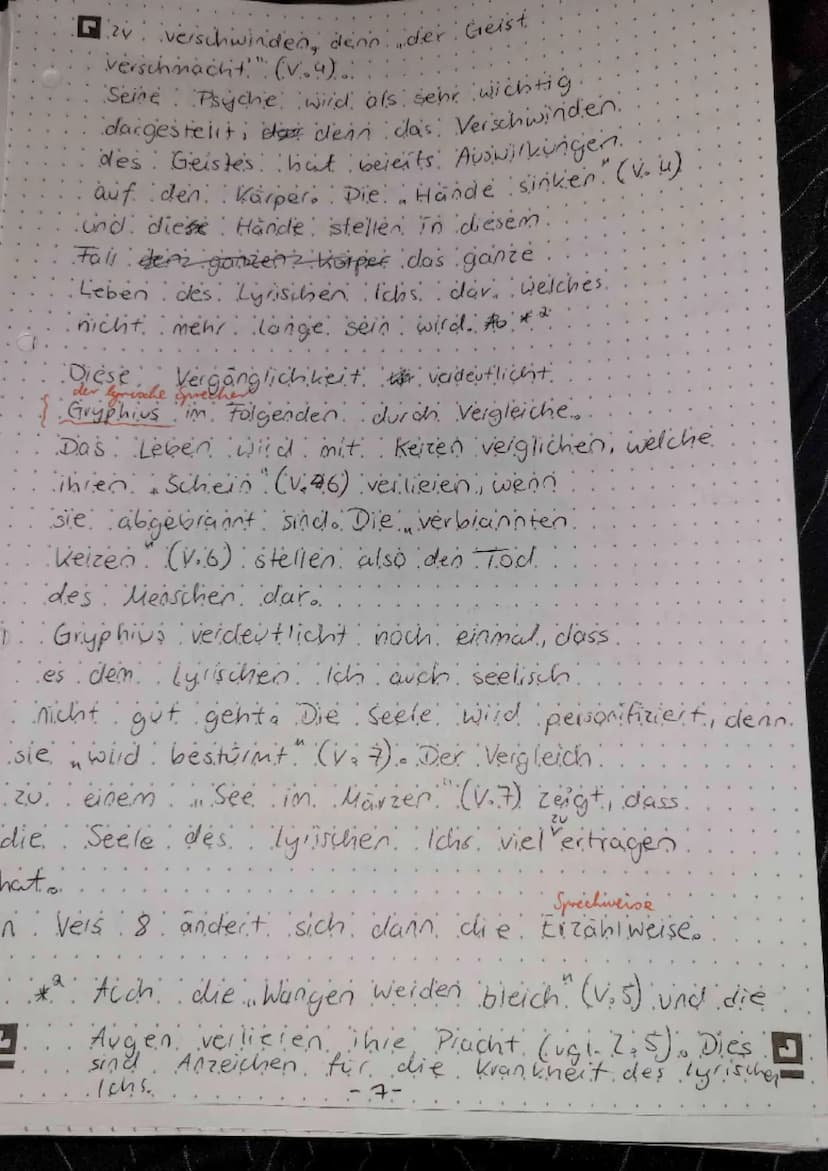 zu verschwinden, denn „der Geist
verschmacht'" (V.4).
Seine Psyche wird als sehr wichtig
dargestellt, denn das Verschwinden
des Geistes hat bereits Auswirkungen
auf den Körper. Die „Hände sinken" (V.4)
und diese Hände stellen in diesem
Fall denz ganzenz Körper das ganze
Leben des Lyrischen Ichs dar, welches
nicht mehr lange sein wird. *2
Diese Vergänglichkeit verdeutlicht
der lyrische Sprecher
Gryphius im Folgenden durch Vergleiche.
Das Leben wird mit Kerzen verglichen, welche
ihren „Schein" (V.6) verlieren, wenn
sie abgebrannt sind. Die „verbrannten
Kerzen" (V.6) stellen also den Tod
des Menschen dar.
Gryphius verdeutlicht noch einmal, dass
es dem Lyrischen Ich auch seelisch
nicht gut geht. Die Seele wird personifiziert, denn
sie „wird bestürmt" (V.7). Der Vergleich
zu einem „See im Märzen" (V.7) zeigt, dass
die Seele des lyrischen Ichs viel zu ertragen
hat.
Sprechweise
n Vers 8 ändert sich dann die Erzählweise.
*2 Auch die „Wangen werden bleich" (V.5) und die
Augen verlieren ihre Pracht (vgl. Z.5). Dies
sind Anzeichen für die Krankheit des lyrischen
Ichs.
-7-